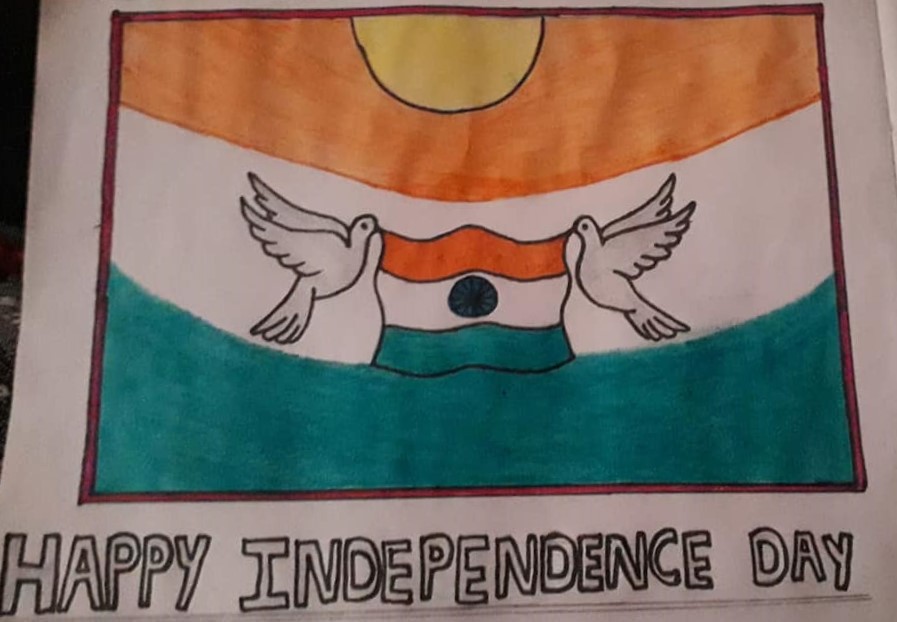 HAPPY INDEPENDENCE DAY